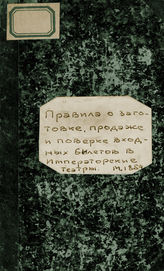 Правила о заго-
товке, продаже
и поверке вход-
ных билетов в
Императорские
театры. М, 188